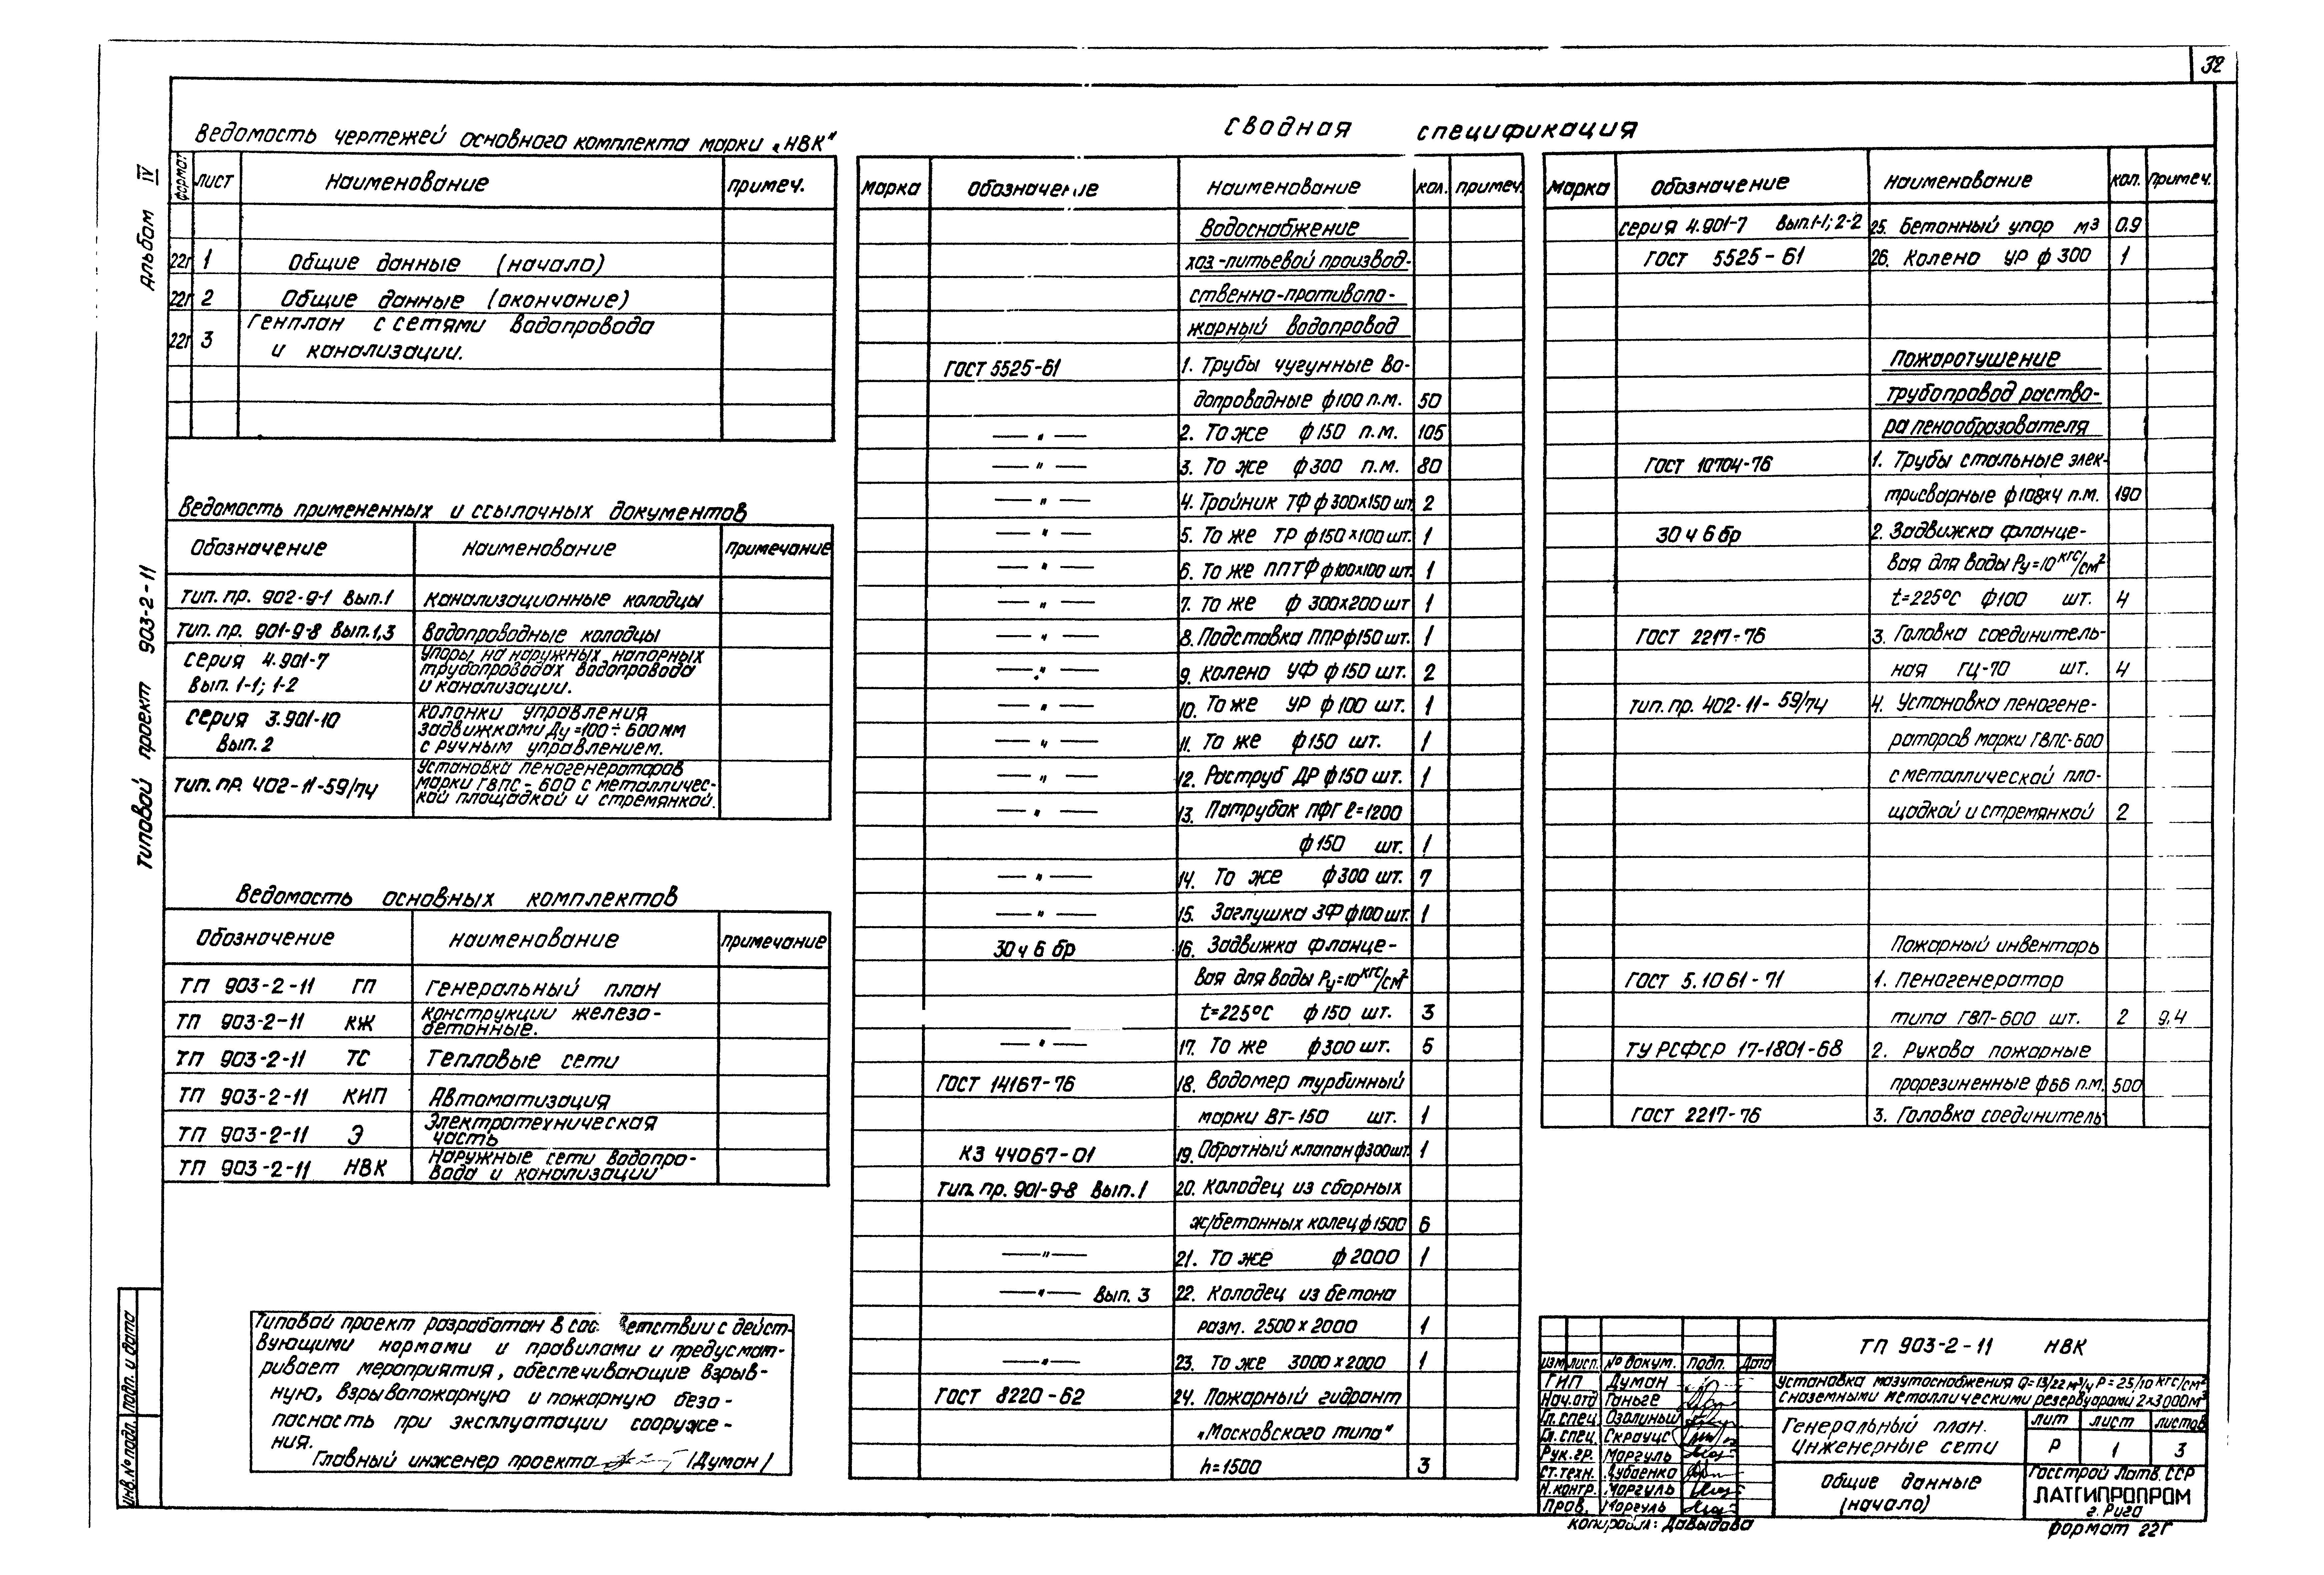 32
Альбом IV
Типовой проект 903-2-11
Ведомость чертежей основного комплекта марки „НВК"
формат лист Наименование примеч.
22г 1 Общие данные (начало)
22г 2 Общие данные (окончание)
22г 3 Генплан с сетями водопровода
и канализации.
Ведомость примененных и ссылочных документов
Обозначение Наименование Примечание
Тип. пр. 902-9-1 вып.1 Канализационные колодцы
Тип. пр. 901-9-8 вып.1,3 Водопроводные колодцы
серия 4.901-7 упоры на наружных напорных
трубопроводах водопровода
вып. 1-1; 1-2 и канализации.
серия 3.901-10 колонки управления
задвижками Ду=100÷600мм
вып. 2 с ручным управлением.
Тип. пр. 402-11-59/74 Установка пеногенераторов
марки ГВПС-600 с металличес-
кой площадкой и стремянкой.
Ведомость основных комплектов
Обозначение Наименование примечание
ТП 903-2-11 ГП Генеральный план
ТП 903-2-11 КЖ Конструкции железо-
бетонные.
ТП 903-2-11 ТС Тепловые сети
ТП 903-2-11 КИП Автоматизация
ТП 903-2-11 Э Электротехническая
часть
ТП 903-2-11 НВК Наружные сети водопро-
вода и канализации
Типовой проект разработан в соо ветствии с дейст-
вующими нормами и правилами и предусмат-
ривает мероприятия, обеспечивающие взрыв-
ную, взрывопожарную и пожарную безо-
пасность при эксплуатации сооруже-
ния.
Главный инженер проекта /Думан/
инв.№ подл. подп. и дата
Сводная спецификация
марка Обозначение Наименование кол. примеч.
Водоснабжение
хоз-питьевой производ-
ственно-противопо-
жарный водопровод
ГОСТ 5525-61 1. Трубы чугунные во-
допроводные ф100 п.м. 50
— " — 2. То же ф150 п.м. 105
— " — 3. То же ф300 п.м. 80
— " — 4. Тройник ТФ ф300х150 шт. 2
— " — 5. То же ТР ф150х100 шт. 1
— " — 6. То же ППТФ ф100х100 шт. 1
— " — 7. То же ф 300х200 шт 1
— " — 8. Подставка ППР ф150 шт. 1
— " — 9. колено УФ ф150 шт. 2
— " — 10. То же УР ф100 шт. 1
— " — 11. То же ф150 шт. 1
— " — 12. Раструб ДР ф150 шт. 1
— " — 13. Патрубок ПФГ ℓ=1200
ф150 шт. 1
— " — 14. То же ф300 шт. 7
— " — 15. Заглушка ЗФ ф100 шт. 1
30ч6бр 16. Задвижка фланце-
вая для воды Ру=10 кгс/см²
t=225°С ф150 шт. 3
— " — 17. То же ф300 шт. 5
ГОСТ 14167-76 18. Водомер турбинный
марки ВТ-150 шт. 1
КЗ 44067-01 19. Обратный клапан ф300 шт. 1
Тип. пр. 901-9-8 вып. 1 20. Колодец из сборных
ж/бетонных колец ф1500 6
— " — 21. То же ф2000 1
— " — вып. 3 22. Колодец из бетона
разм. 2500х2000 1
— " — 23. То же 3000х2000 1
ГОСТ 8220-62 24. Пожарный гидрант
„Московского типа"
h=1500 3
марка Обозначение Наименование кол. примеч.
серия 4.901-7 вып.1-1; 2-2 25. Бетонный упор м3 0.9
ГОСТ 5525-61 26. Колено УР ф300 1
Пожаротушение
трубопровод раство-
ра пенообразователя
ГОСТ 10704-76 1. Трубы стальные элек-
тросварные ф108х4 п.м. 190
30ч6бр 2. Задвижка фланце-
вая для воды Ру=10 кгс/см²
t=225°С ф100 шт. 4
ГОСТ 2217-76 3. Головка соединитель-
ная ГЦ-70 шт. 4
тип. пр. 402-11-59/74 4. Установка пеногене-
раторов марки ГВПС-600
с металлической пло-
щадкой и стремянкой 2
Пожарный инвентарь
ГОСТ 5.1061-71 1. Пеногенератор
типа ГВП-600 шт. 2 9,4
ТУ РСФСР 17-1801-68 2. Рукова пожарные
прорезиненные ф66 п.м. 500
ГОСТ 2217-76 3. Головка соединитель-
изм лист. № докум. подп. Дата
ГИП Думан
Нач.отд Ганьге
Гл.спец. Озолиньш
Гл.спец. Скрауцс
Рук.гр. Маргуль
Ст.техн. Зубаенко
Н.контр. Маргуль
Пров. Маргуль
ТП 903-2-11 НВК
Установка мазутоснабжения Q=13/22 м³/ч Р=25/10 кгс/см²
с наземными металлическими резервуарами 2х3000м³
Генеральный план.
Инженерные сети
лит лист листов
Р 1 3
Общие данные
(начало)
Госстрой Латв. ССР
ЛАТГИПРОПРОМ
г. Рига
копировал: Давыдова
формат 22Г